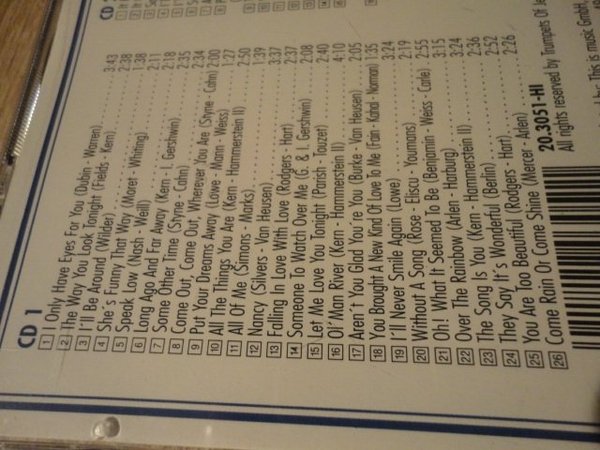 CD 1
1 I Only Have Eyes For You (Dubin - Warren) 3:43
2 The Way You Look Tonight (Fields - Kern) 2:38
3 I'll Be Around (Wilder) 1:38
4 She's Funny That Way (Moret - Whiting) 2:11
5 Speak Low (Nash - Weill) 2:18
6 Long Ago And Far Away (Kern - I. Gershwin) 2:35
7 Some Other Time (Styne - Cahn) 2:34
8 Come Out, Come Out, Wherever You Are (Styne - Cahn) 2:00
9 Put Your Dreams Away (Lowe - Mann - Weiss) 1:27
10 All The Things You Are (Kern - Hammerstein II) 2:50
11 All Of Me (Simons - Marks) 1:39
12 Nancy (Silvers - Van Heusen) 3:37
13 Falling In Love With Love (Rodgers - Hart) 2:37
14 Someone To Watch Over Me (G. & I. Gershwin) 2:08
15 Let Me Love You Tonight (Parish - Touzet) 2:40
16 Ol' Man River (Kern - Hammerstein II) 4:10
17 Aren't You Glad You're You (Burke - Van Heusen) 2:05
18 You Brought A New Kind Of Love To Me (Fain - Kahal - Norman) 1:35
19 I'll Never Smile Again (Lowe) 3:24
20 Without A Song (Rose - Eliscu - Youmans) 2:19
21 Oh! What It Seemed To Be (Benjamin - Weiss - Carle) 2:55
22 Over The Rainbow (Arlen - Harburg) 3:15
23 The Song Is You (Kern - Hammerstein II) 3:24
24 They Say It's Wonderful (Berlin) 2:36
25 You Are Too Beautiful (Rodgers - Hart) 2:52
26 Come Rain Or Come Shine (Mercer - Arlen) 2:26
CD 2
20.3051-HI
All rights reserved by Trumpets Of Je
by: This is music GmbH,